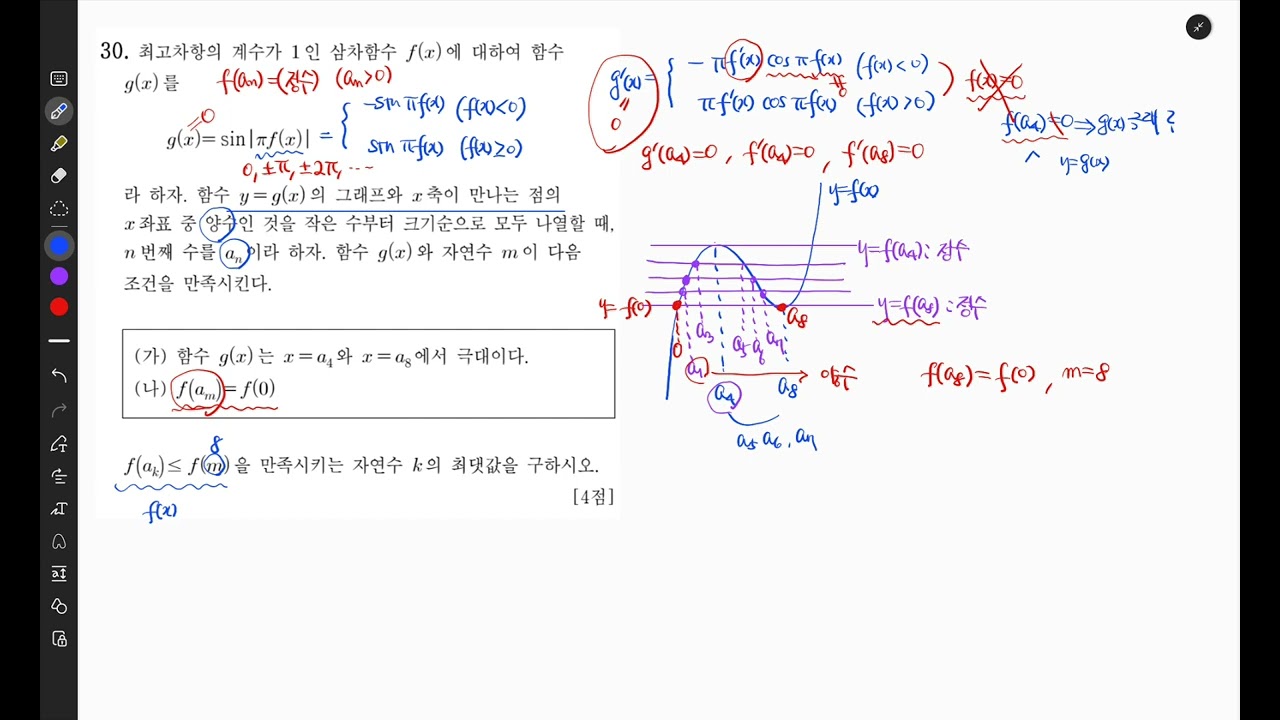 30. 최고차항의 계수가 1인 삼차함수 f(x)에 대하여 함수
g(x)를
f(aₙ)=(정수) (aₙ>0)
=0
g(x)=sin|πf(x)| = { -sin πf(x) (f(x)<0)
sin πf(x) (f(x)≥0)
0, ±π, ±2π, ...
라 하자. 함수 y=g(x)의 그래프와 x축이 만나는 점의
x좌표 중 양수인 것을 작은 수부터 크기순으로 모두 나열할 때,
n번째 수를 aₙ이라 하자. 함수 g(x)와 자연수 m이 다음
조건을 만족시킨다.
(가) 함수 g(x)는 x=a₄와 x=a₈에서 극대이다.
(나) f(aₘ)=f(0)
8
f(aₖ)≤f(m)을 만족시키는 자연수 k의 최댓값을 구하시오.
[4점]
f(x)
g'(x)= { -πf'(x) cos πf(x) (f(x)<0)
πf'(x) cos πf(x) (f(x)>0)
=0
f(x)=0
f(a₄)=0 ⇒ g(x) 극대?
y=g(x)
g'(a₄)=0, f'(a₄)=0, f'(a₈)=0
y=f(x)
y=f(a₄): 정수
y=f(0)
y=f(a₈): 정수
a₈
0
a₃
a₅ a₆ a₇
a₁
양수
a₄
a₈
a₅ a₆, a₇
f(a₈)=f(0), m=8